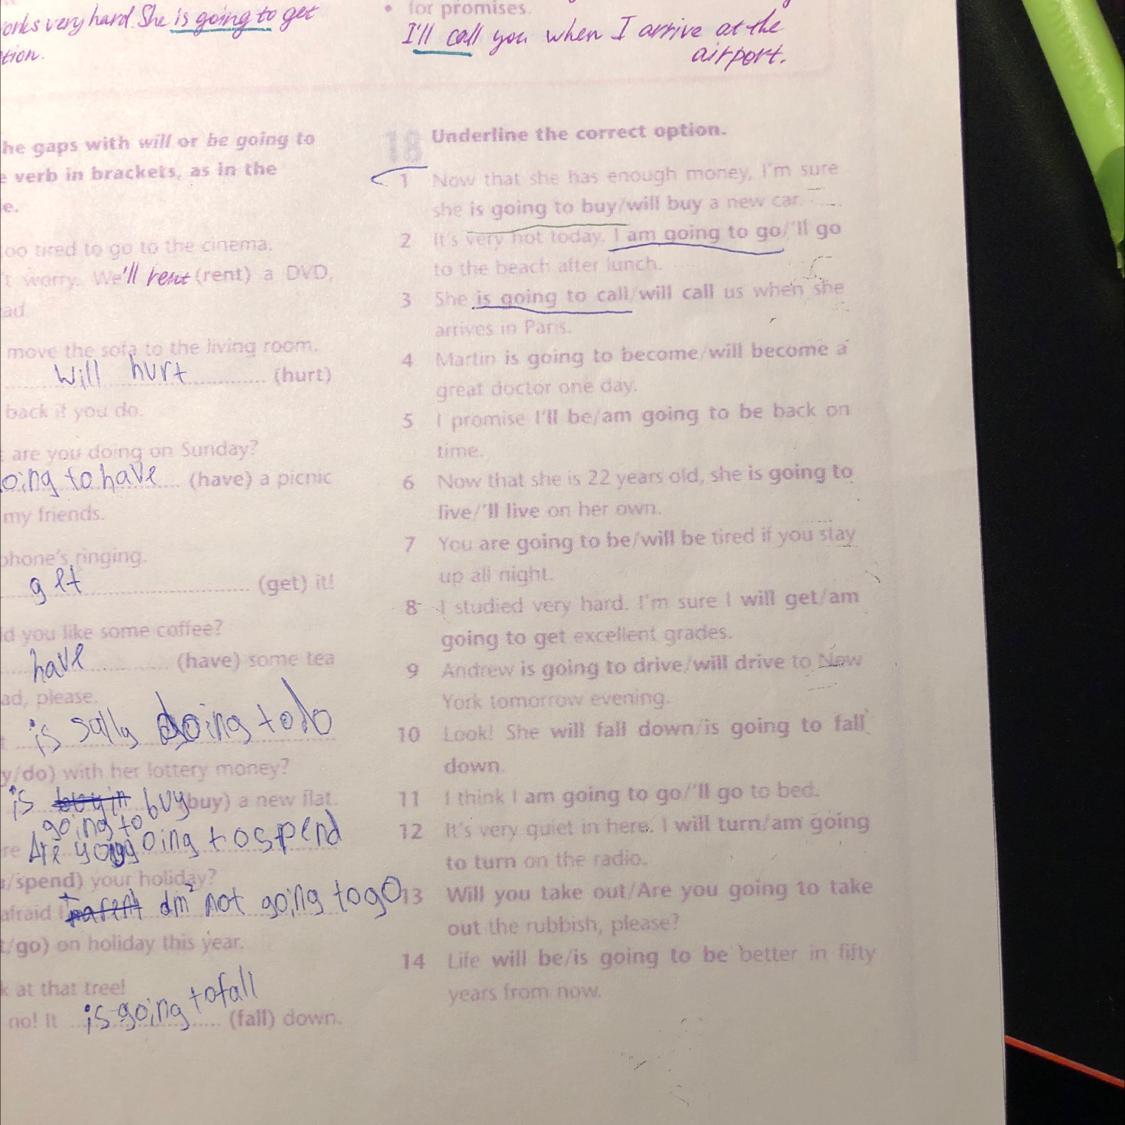 orks very hard. She is going to get
tion.
he gaps with will or be going to
e verb in brackets, as in the
e.
oo tired to go to the cinema.
't worry. We'll rent (rent) a DVD,
ad.
move the sofa to the living room.
will hurt (hurt)
back if you do.
are you doing on Sunday?
oing to have (have) a picnic
my friends.
phone's ringing.
get (get) it!
ld you like some coffee?
have (have) some tea
ad, please.
is Sally going to do
y/do) with her lottery money?
is buy buy) a new flat.
going to
re Are you going to spend
/spend) your holiday?
afraid I not going to go
t/go) on holiday this year.
k at that tree!
no! It is going to fall (fall) down.
• for promises.
I'll call you when I arrive at the
airport.
18 Underline the correct option.
1 Now that she has enough money, I'm sure
she is going to buy/will buy a new car.
2 It's very hot today. I am going to go/'ll go
to the beach after lunch.
3 She is going to call/will call us when she
arrives in Paris.
4 Martin is going to become/will become a
great doctor one day.
5 I promise I'll be/am going to be back on
time.
6 Now that she is 22 years old, she is going to
live/'ll live on her own.
7 You are going to be/will be tired if you stay
up all night.
8 I studied very hard. I'm sure I will get/am
going to get excellent grades.
9 Andrew is going to drive/will drive to New
York tomorrow evening.
10 Look! She will fall down/is going to fall
down.
11 I think I am going to go/'ll go to bed.
12 It's very quiet in here. I will turn/am going
to turn on the radio.
13 Will you take out/Are you going to take
out the rubbish, please?
14 Life will be/is going to be better in fifty
years from now.